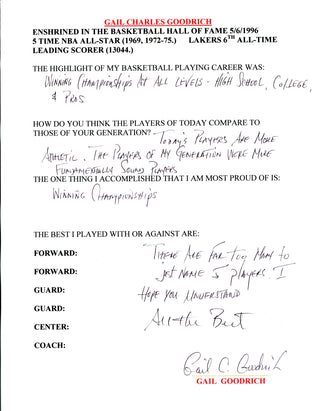 GAIL CHARLES GOODRICH
ENSHRINED IN THE BASKETBALL HALL OF FAME 5/6/1996
5 TIME NBA ALL-STAR (1969, 1972-75.) LAKERS 6TH ALL-TIME
LEADING SCORER (13044.)
THE HIGHLIGHT OF MY BASKETBALL PLAYING CAREER WAS:
WINNING CHAMPIONSHIPS AT ALL LEVELS - HIGH SCHOOL, COLLEGE,
& PROS
HOW DO YOU THINK THE PLAYERS OF TODAY COMPARE TO
THOSE OF YOUR GENERATION? - TODAY'S PLAYERS ARE MORE
ATHLETIC. THE PLAYERS OF MY GENERATION WERE MORE
FUNDAMENTALLY SOUND PLAYERS
THE ONE THING I ACCOMPLISHED THAT I AM MOST PROUD OF IS:
WINNING CHAMPIONSHIPS
THE BEST I PLAYED WITH OR AGAINST ARE:
FORWARD: THERE ARE FAR TOO MANY to
FORWARD: just NAME 5 PlAYERS. I
GUARD: HOPE YOU UNDERSTAND
GUARD:
All the Best
CENTER:
COACH:
Gail C. Goodrich
GAIL GOODRICH